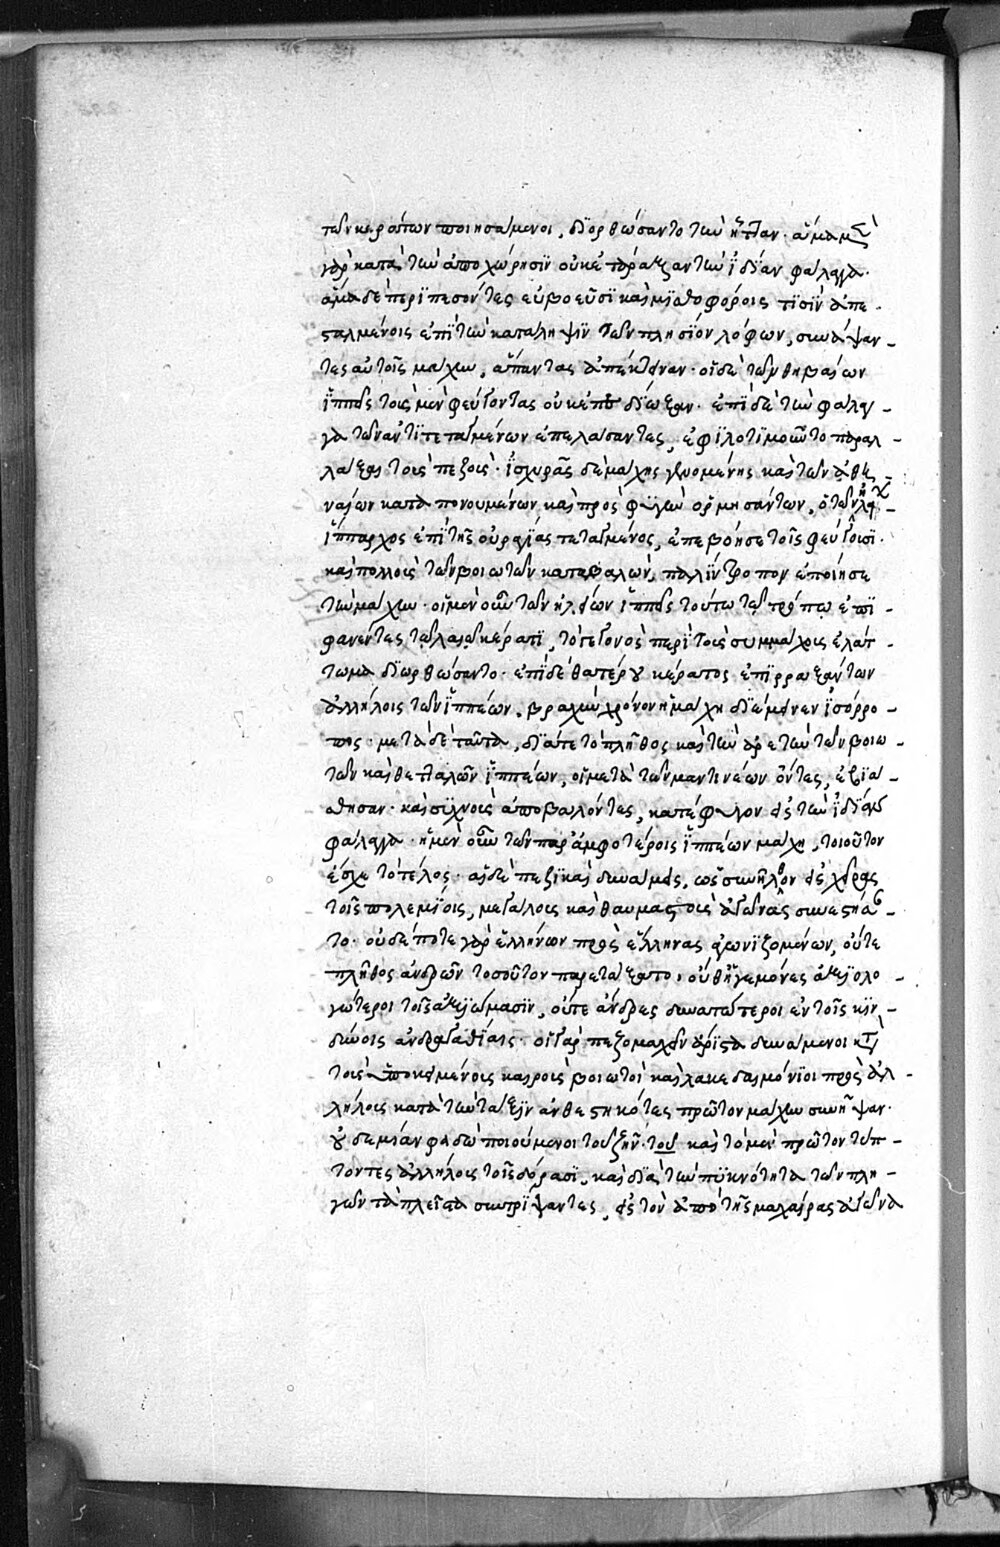 τῶν κεράτων ποιησάμενοι, διορθώσαντο τὴν ἧτταν· ἅμα μὲν
γὰρ κατὰ τὴν ἀποχώρησιν οὐκ ἐτάραξαν τὴν ἰδίαν φάλαγγα·
ἅμα δὲ περιπεσόντες εὐβοεῦσι καὶ μισθοφόροις τισὶν ἀπε-
σταλμένοις ἐπὶ τὴν κατάληψιν τῶν πλησίον λόφων, συνάψαν-
τες αὐτοῖς μάχην, ἅπαντας ἀπέκτειναν· οἱ δὲ τῶν θηβαίων
ἱππεῖς τοὺς μὲν φεύγοντας οὐκ ἐπεδίωξαν· ἐπὶ δὲ τὴν φάλαγ-
γα τῶν ἀντιτεταγμένων ἐπελάσαντες, ἐφιλοτιμοῦντο παραλ-
λάξαι τοὺς πεζούς· ἰσχυρᾶς δὲ μάχης γενομένης καὶ τῶν ἀθη-
ναίων καταπονουμένων καὶ πρὸς φυγὴν ὁρμησάντων, ὁ τῶν ἠλεί-
ἵππαρχος ἐπὶ τῆς οὐραγίας τεταγμένος, ἐπεβόησε τοῖς φεύγουσι·
καὶ πολλοὺς τῶν βοιωτῶν καταβαλὼν, παλίντροπον ἐποίησε
τὴν μάχην· οἱ μὲν οὖν τῶν ἠλείων ἱππεῖς τούτω τῶ τρόπω ἐπι-
φανέντες τῶ λαιῶ κέρατι, τὸ γεγονὸς περὶ τοὺς συμμάχους ἐλάτ-
τωμα διωρθώσαντο· ἐπὶ δὲ θατέρου κέρατος ἐπιρραξάντων
ἀλλήλοις τῶν ἱππέων, βραχὺν χρόνον ἡ μάχη διέμεινεν ἰσόρρο-
πος· μετὰ δὲ ταῦτα, διά τε τὸ πλῆθος καὶ τὴν ἀρετὴν τῶν βοιω-
τῶν καὶ θετταλῶν ἱππέων, οἱ μετὰ τῶν μαντινέων ὄντες, ἐβιά-
σθησαν· καὶ συχνοὺς ἀποβαλόντες, κατέφυγον εἰς τὴν ἰδίαν
φάλαγγα· ἡ μὲν οὖν τῶν παρ' ἀμφοτέροις ἱππέων μάχη, τοιοῦτον
ἔσχε τὸ τέλος· αἱ δὲ πεζικαὶ δυνάμεις, ὡς συνῆλθον εἰς χεῖρας
τοῖς πολεμίοις, μεγάλους καὶ θαυμαστοὺς ἀγῶνας συνεστήσαν-
το· οὐδέποτε γὰρ ἑλλήνων πρὸς ἕλληνας ἀγωνιζομένων, οὔτε
πλῆθος ἀνδρῶν τοσοῦτον παρετάξατο, οὔθ' ἡγεμόνες ἀξιολο-
γώτεροι τοῖς ἀξιώμασιν, οὔτε ἄνδρες δυνατώτεροι ἐν τοῖς κιν-
δύνοις ἀνδραγαθίαις· οἱ γὰρ πεζομαχεῖν ἄριστα δυνάμενοι κατὰ
τοὺς ὑποκειμένους καιροὺς βοιωτοὶ καὶ λακεδαιμόνιοι πρὸς ἀλ-
λήλους κατὰ τὴν τάξιν ἀνθεστηκότες πρῶτον μάχην συνῆψαν·
οὐδεμίαν φειδὼ ποιούμενοι τοῦ ζῆν· του καὶ τὸ μὲν πρῶτον τύπ-
τοντες ἀλλήλους τοῖς δόρασι, καὶ διὰ τὴν πυκνότητα τῶν πλη-
γῶν τὰ πλεῖστα συντρίψαντες, εἰς τὸν ἀπὸ τῆς μαχαίρας ἀγῶνα